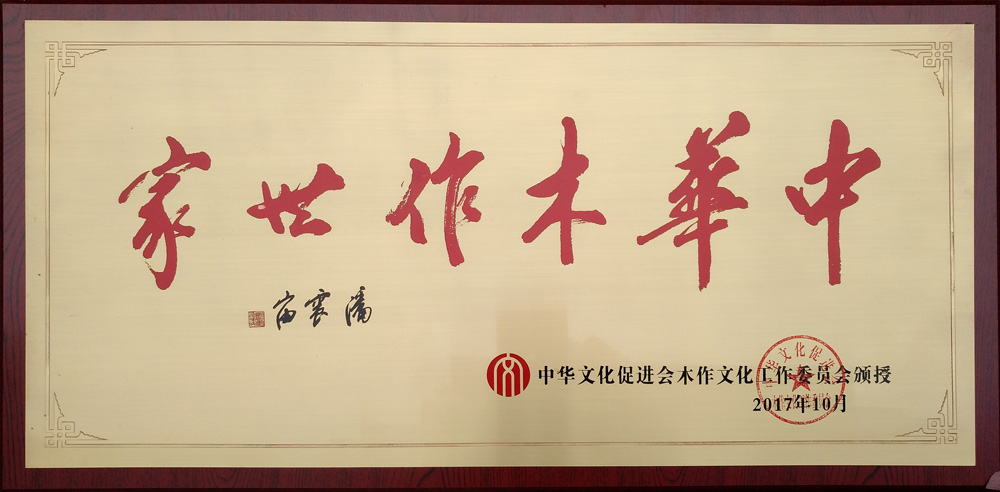 中華木作世家
潘震宙
中华文化促进会木作文化工作委员会颁授
2017年10月
中华文化促进会